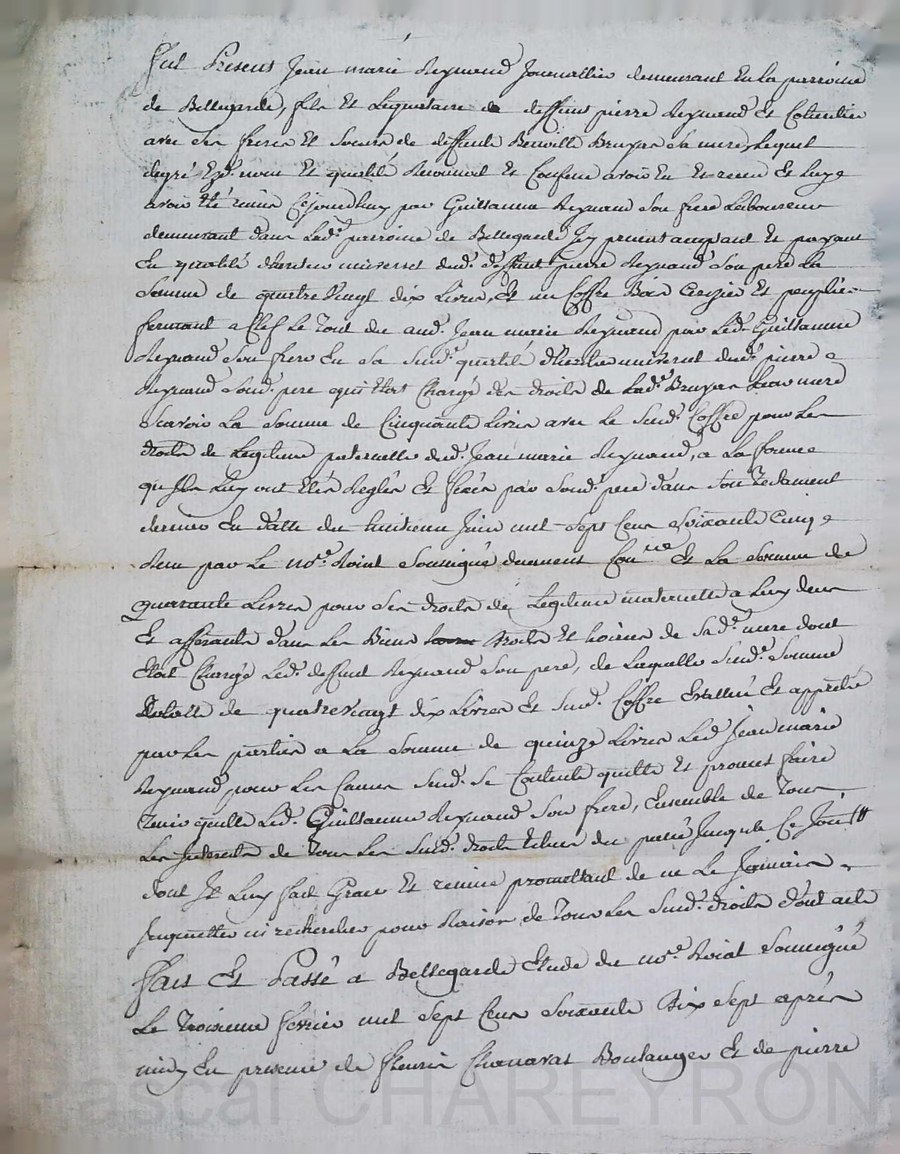 Fut Present Jean marie Reymond Journallier demeurant En la parroisse
de Bellegarde, fils Et Legataire de deffunt pierre Reymond Et Coheritier
avec ses freres Et Soeurs de deffunte Benoitte Bruyas Sa mere, Lequel
degré Ezd. nom Et qualité Reconnoit Et Confesse avoir Eu Et receu Et luy
avoir Eté remis Cejourdhuy par Guillaume Reymond Son frere Laboureur
demeurant dans Lad. parroisse de Bellegarde Icy present acceptant Et payant
En qualité dheritier universel dud. deffunt pierre Reymond Son pere La
Somme de quatre Vingt dix Livres, Et un Coffre Bois Cerizier Et peuplier
fermant a Clef Le Tout du aud. Jean marie Reymond par Led. Guillaume
Reymond Son frere En Sa Susd. qualité dheritier universel dud. pierre
Reymond Sond. pere qui Etoit Chargé des droits de Lad. Bruyas Leur mere
Scavoir La Somme de Cinquante Livres avec Le Susd. Coffre pour Les
droits de Legitime paternelle dud. Jean marie Reymond, a La forme
quils Luy ont Etés Reglés Et fixés par Sond. pere dans Son Testament
dernier En datte du huitieme Juin mil Sept Cens Soixante Cinq
Receu par Le no.re Roial Soussigné duement Con.lé Et La Somme de
quarante Livres pour Ses droits de Legitime maternelle a Luy deus
Et afferants dans Les Biens droits Et hoiries de Sad. mere dont
Etoit Chargé Led. deffunt Reymond Son pere, de Laquelle Susd. Somme
Totalle de quatrevingt dix Livres Et Susd. Coffre Evallué Et apprétié
par Les parties a La Somme de quinze Livres Led. Jean marie
Reymond pour Les Causes Susd. Se Contente quitte Et promet faire
Tenir quitte Led. Guillaume Reymond Son frere, Ensemble de Tous
Les Interets de Tous Les Susd. droits Echus du passé Jusqu'a Ce Jour
dont Il Luy fait Grace Et remise promettant de ne Le Jamais
Inquietter ni rechercher pour Raison de Tous Les Susd. droits dont acte
Fait Et Passé a Bellegarde Etude du no.re Roial Soussigné
Le Troisieme fevrier mil Sept Cens Soixante Dix Sept après
midy En presence de fleurie Chanavat Boulanger Et de pierre
Pascal CHAREYRON